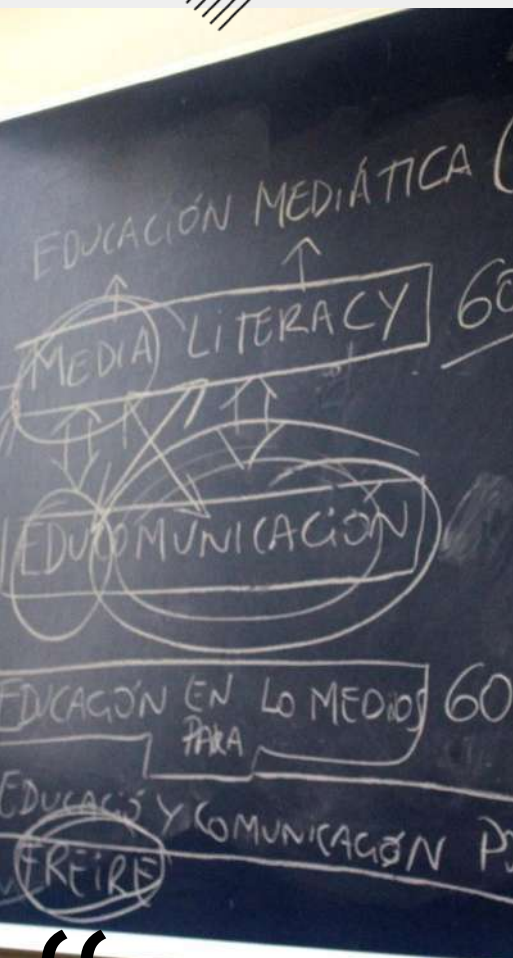 EDUCACIÓN MEDIÁTICA (
MEDIA LITERACY 60
EDUCOMUNICACIÓN
EDUCACIÓN EN LO MEDIOS 60
PARA
EDUCACIÓ Y COMUNICACIÓN
FREIRE
“